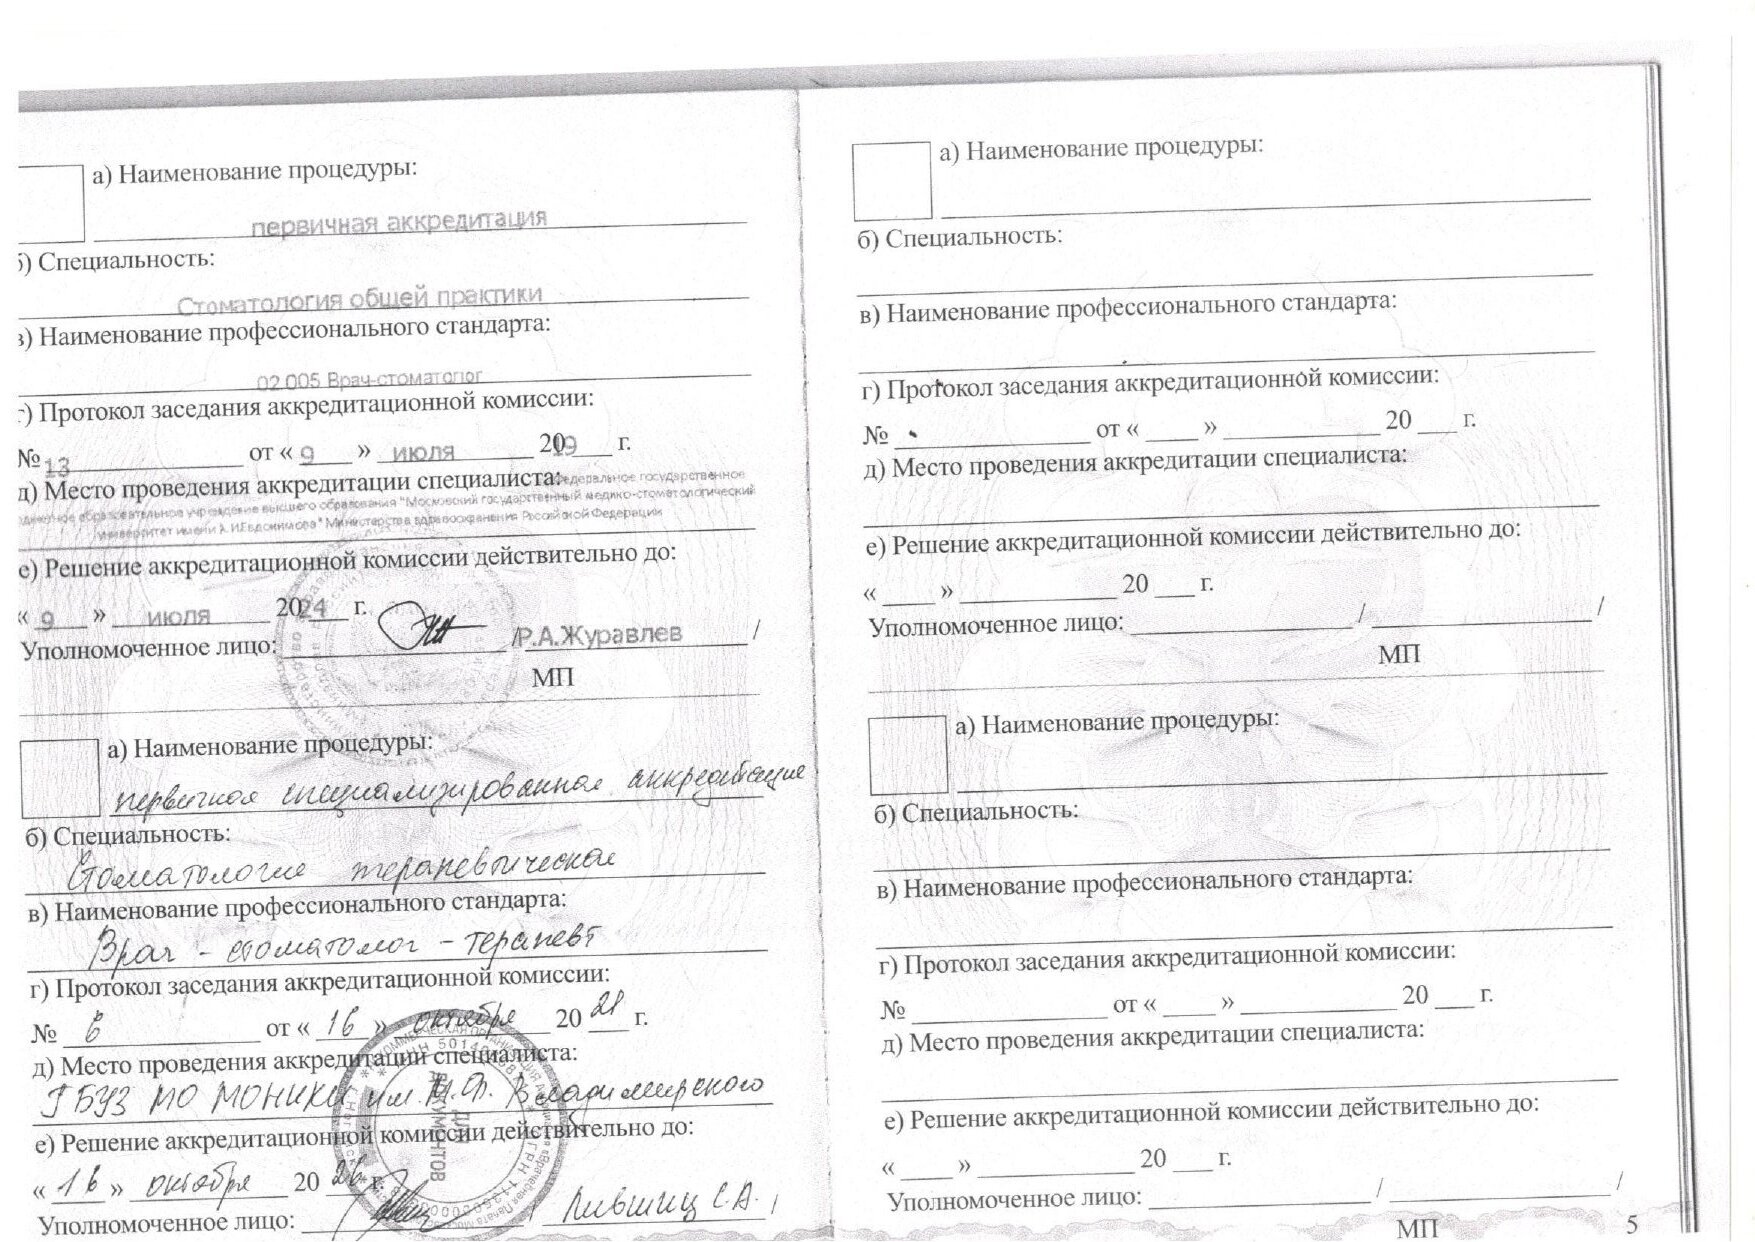 а) Наименование процедуры:
первичная аккредитация
б) Специальность:
Стоматология общей практики
в) Наименование профессионального стандарта:
02.005 Врач-стоматолог
г) Протокол заседания аккредитационной комиссии:
№ 13 от « 9 » июля 2019 г.
д) Место проведения аккредитации специалиста: Федеральное государственное
бюджетное образовательное учреждение высшего образования "Московский государственный медико-стоматологический
университет имени А.И.Евдокимова" Министерства здравоохранения Российской Федерации
е) Решение аккредитационной комиссии действительно до:
« 9 » июля 2024 г.
Уполномоченное лицо: /Р.А.Журавлев /
МП
а) Наименование процедуры:
первичная специализированная аккредитация
б) Специальность:
Стоматология терапевтическая
в) Наименование профессионального стандарта:
Врач-стоматолог-терапевт
г) Протокол заседания аккредитационной комиссии:
№ 6 от « 16 » октября 2021 г.
д) Место проведения аккредитации специалиста:
ГБУЗ МО МОНИКИ им. М.Ф. Владимирского
е) Решение аккредитационной комиссии действительно до:
« 16 » октября 2026 г.
Уполномоченное лицо: / Лившиц С.А. /
ДЛЯ
ДОКУМЕНТОВ
а) Наименование процедуры:
б) Специальность:
в) Наименование профессионального стандарта:
г) Протокол заседания аккредитационной комиссии:
№ ____ от « ____ » ____ 20 ___ г.
д) Место проведения аккредитации специалиста:
е) Решение аккредитационной комиссии действительно до:
« ____ » ____ 20 ___ г.
Уполномоченное лицо: ____ / ____ /
МП
а) Наименование процедуры:
б) Специальность:
в) Наименование профессионального стандарта:
г) Протокол заседания аккредитационной комиссии:
№ ____ от « ____ » ____ 20 ___ г.
д) Место проведения аккредитации специалиста:
е) Решение аккредитационной комиссии действительно до:
« ____ » ____ 20 ___ г.
Уполномоченное лицо: ____ / ____ /
МП
5